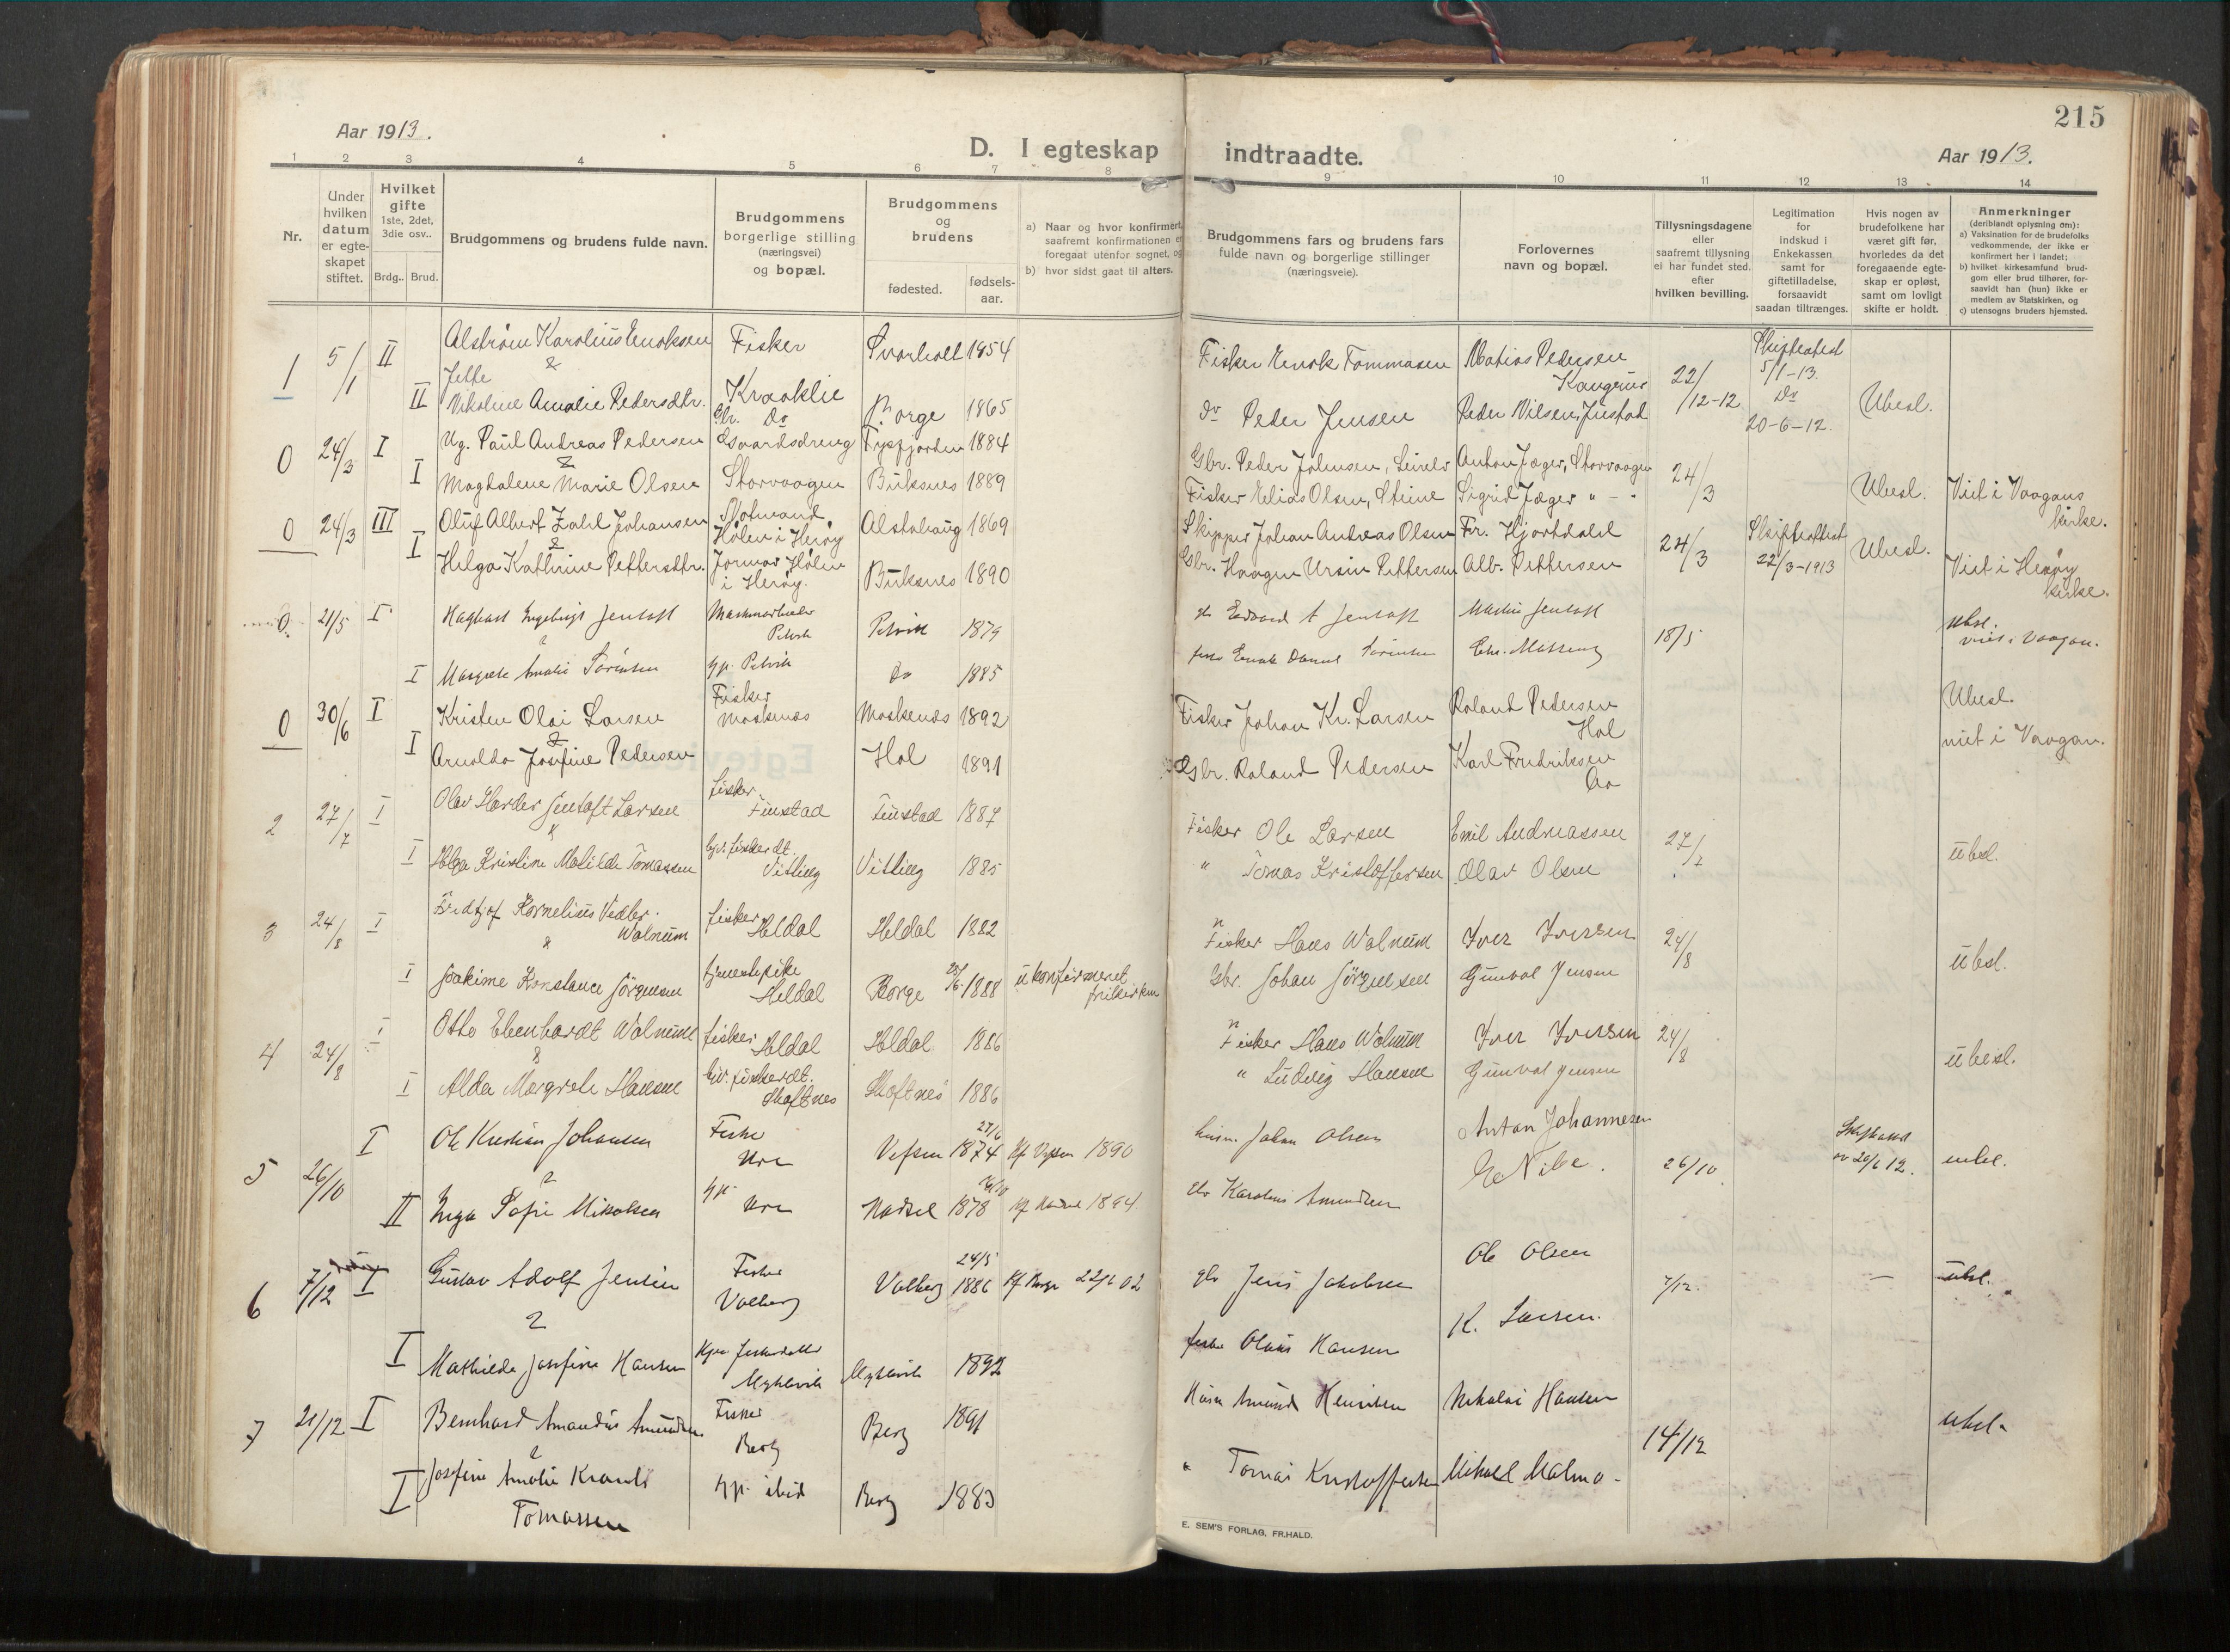 215
Aar 1913.
D. I egteskap indtraadte.
Aar 1913.
1 2 3 4 5 6 7 8 9 10 11 12 13 14
Nr.
Under hvilken datum er egteskapet stiftet.
Hvilket gifte 1ste, 2det, 3die osv..
Brdg.. Brud.
Brudgommens og brudens fulde navn.
Brudgommens borgerlige stilling (næringsvei) og bopæl.
Brudgommens og brudens
fødested. fødsels-aar.
a) Naar og hvor konfirmert, saafremt konfirmationen er foregaat utenfor sognet, og
b) hvor sidst gaat til alters.
Brudgommens fars og brudens fars fulde navn og borgerlige stillinger (næringsveie).
Forlovernes navn og bopæl.
Tillysningsdagene eller saafremt tillysning ei har fundet sted, efter hvilken bevilling.
Legitimation for indskud i Enkekassen samt for giftetilladelse, forsaavidt saadan tiltrænges.
Hvis nogen av brudefolkene har været gift før, hvorledes da det foregaaende egteskap er opløst, samt om lovligt skifte er holdt.
Anmerkninger (deriblandt oplysning om):
a) Vaksination for de brudefolks vedkommende, der ikke er konfirmert her i landet;
b) hvilket kirkesamfund brudgom eller brud tilhører, forsaavidt han (hun) ikke er medlem av Statskirken, og
c) utensogns bruders hjemsted.
1 5/1 II Karolius Enoksen Fisker 1854 Fisker Enok Tommasen Matias Pedersen 22/12-12 Skifteattest 5/1-13.
&
II Nikoline Amalie Pedersdtr. Do Borge 1865 do Peder Jensen Peder Nilsen, Justad Do 20-6-12. Ubesl.
0 24/3 I Ug. Paul Andreas Pedersen Gaardsdreng 1884 Gbr. Peder Johnsen, Anton Jæger, Storvaagen 24/3
&
I Magdalene Marie Olsen Storvaagen Buksnes 1889 Fisker Elias Olsen, Steine Sigrid Jæger " - " Ubesl. Viet i Vaagans kirke.
0 24/3 III Oluf Albert Zahl Johansen Notmand Hølen i Herøy Alstahaug 1869 Skipper Johan Andreas Olsen Fr. Hjortdahl 24/3 Skifteattest 22/3-1913 Ubesl.
&
I Helga Kathrine Pettersdtr. i Herøy. Buksnes 1890 Gbr. Haagen Ursin Pettersen Alb. Pettersen Viet i Herøy kirke.
0. 21/5 I Hagbart Ingebrigt Jentoft Petvik 1879 Edvard A Jentoft Martin Jentoft 18/5 Ubesl. viet i Vaagan.
&
I Margrete Amalie Sørensen Petvik do 1885 Enok Daniel Sørensen
0 30/6 I Kristen Olai Larsen Fisker Moskenes Moskenes 1892 Fisker Johan Kr. Larsen Roland Pedersen Hol Ubesl.
&
I Arnolda Josefine Pedersen Hol 1891 Gbr. Roland Pedersen Karl Fredriksen do viet i Vaagan.
2 27/7 I Olav Harder Jentoft Larsen fisker Finstad Finstad 1887 Fisker Ole Larsen Emil Andreassen 27/7
&
I Helga Kristine Matilde Tomassen fiskerdt. Vitting Vitting 1885 " Tomas Kristoffersen Olav Olsen ubesl.
3 24/8 I Fridtjof Kornelius Vedler Walnum fisker Heldal Heldal 1882 Fisker Hans Walnum Iver Iversen 24/8
&
I Joakime Konstance Jørgensen tjenestepike Heldal Borge 1888 ukonfirmeret frikirken Gbr. Johan Jørgensen Gunval Jensen ubesl.
4 24/8 I Otto Ebenhardt Walnum fisker Heldal Heldal 1886 Fisker Hans Walnum Iver Iversen 24/8
&
I Alda Margrete Hansen fiskerdt. Skaftnes Skaftnes 1886 " Ludvig Hansen Gunval Jensen ubesl.
5 26/10 I Ole Kristian Johansen Fisker Ure Vefsen 1874 Kf Vefsen 1890 husm. Johan Olsen Anton Johannesen 26/10 ubesl.
&
II Inga Sofie Mikalsen Ure Hadsel 1878 Kf Hadsel 1894 Karolius Amundsen
6 7/12 I Gustav Adolf Jensen Fisker Valberg Valberg 24/5 1886 Kf Borge 22/6 02 gbr Jens Jakobsen Ole Olsen 7/12. — ubesl.
&
I Mathilde Josefine Hansen 1892 fisker Olaus Hansen K. Larsen.
7 21/12 I Bernhard Amandus Amundsen Fisker Berg Berg 1891 Husm Amund Nikolai Hansen 14/12 ubesl.
&
I Josefine Amalie Tomassen ibid Berg 1883 " Tomas Kristoffersen Mikael Malmo
E. SEM'S FORLAG, FR.HALD.